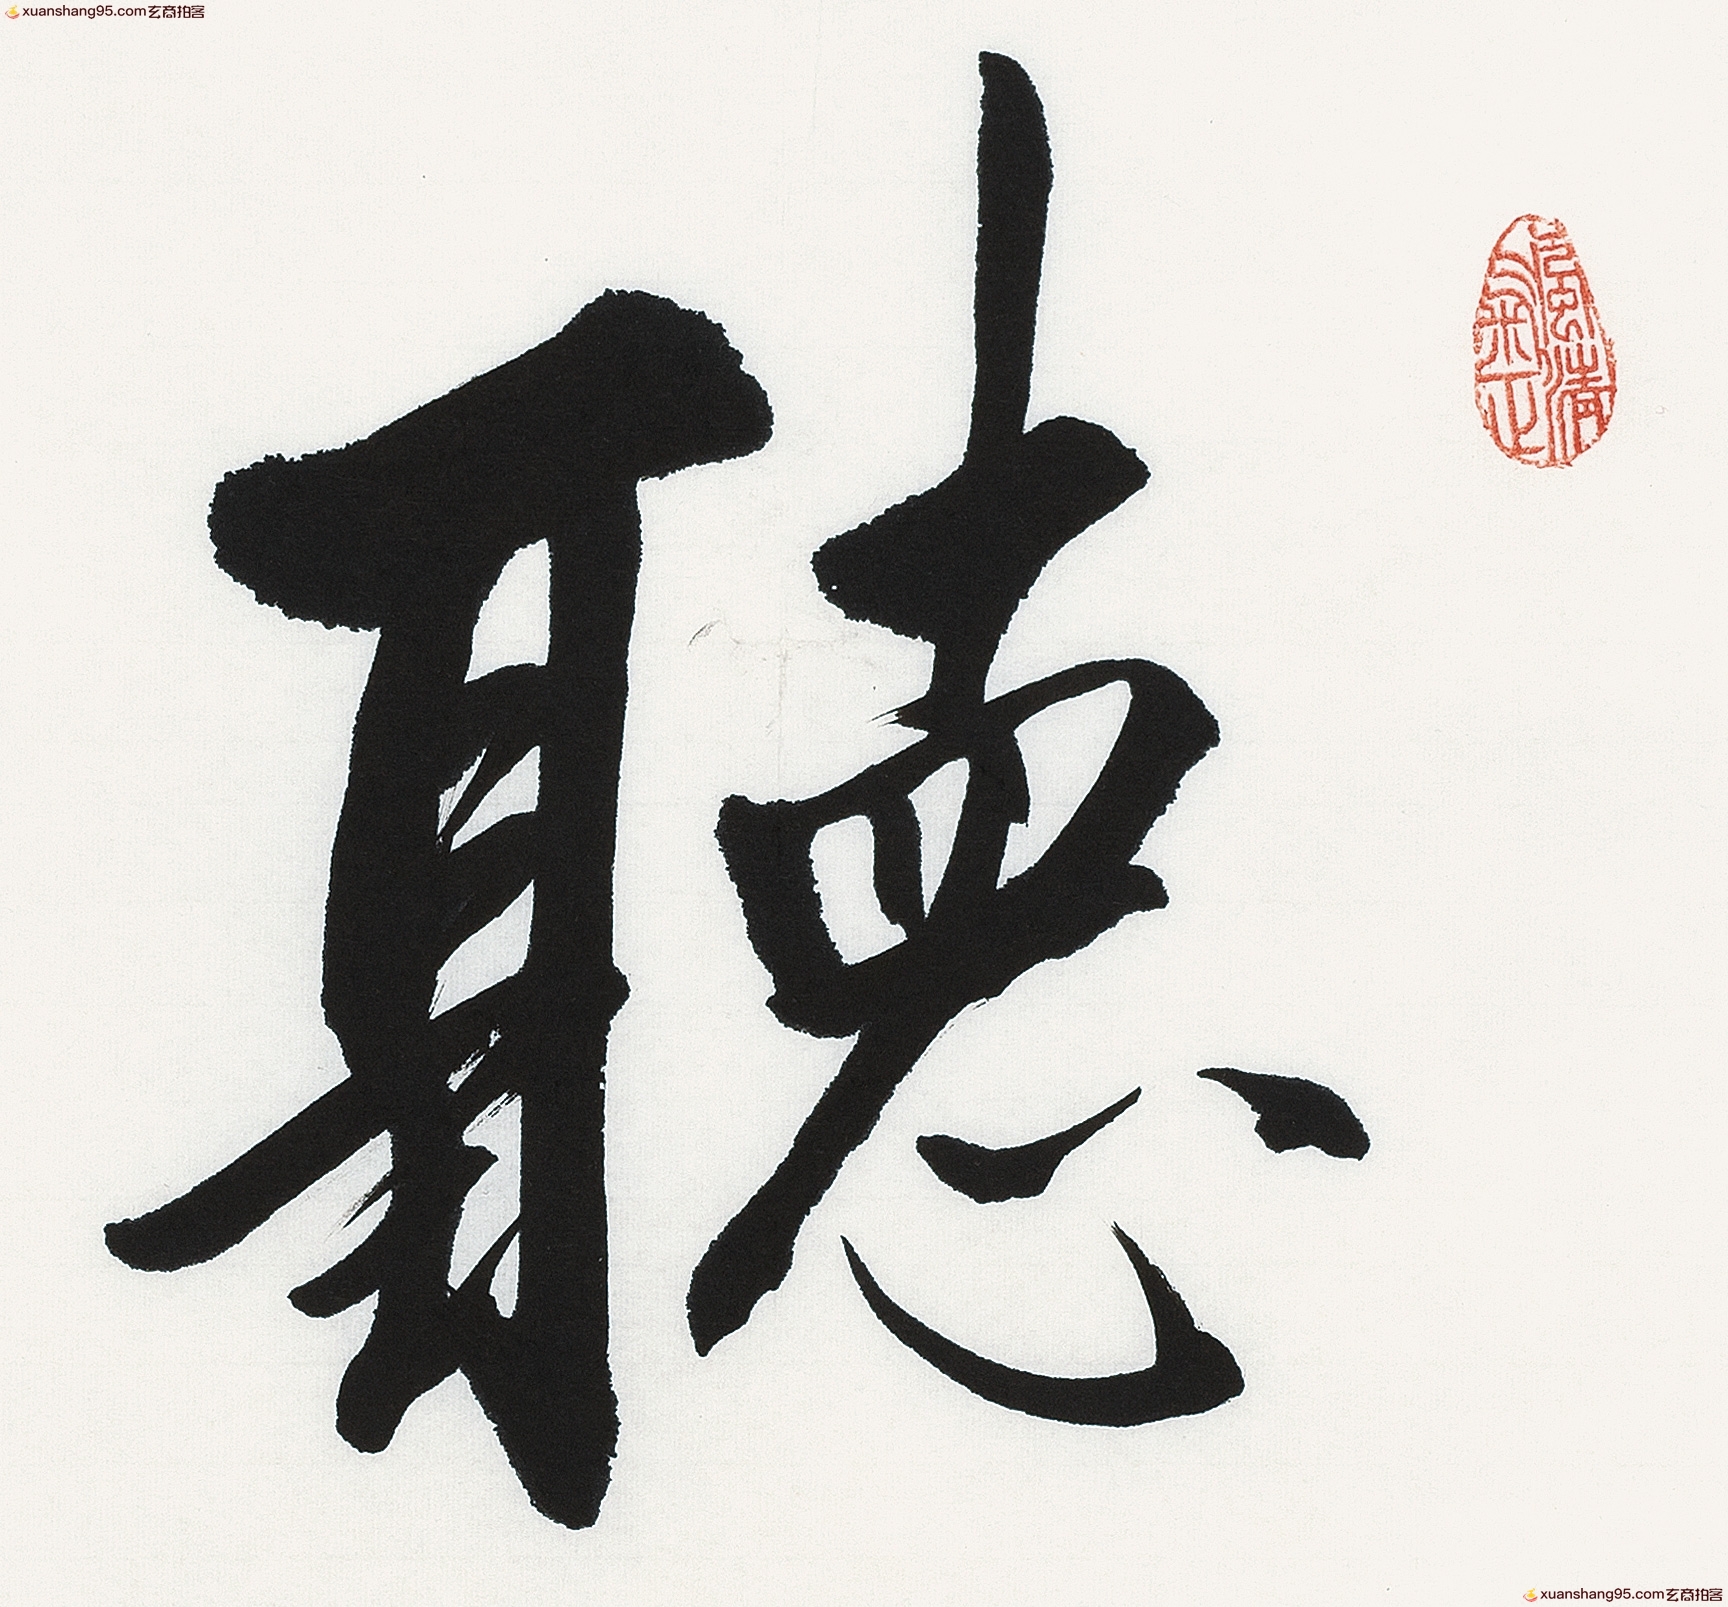 xuanshang95.com玄商拍客
聽
xuanshang95.com玄商拍客